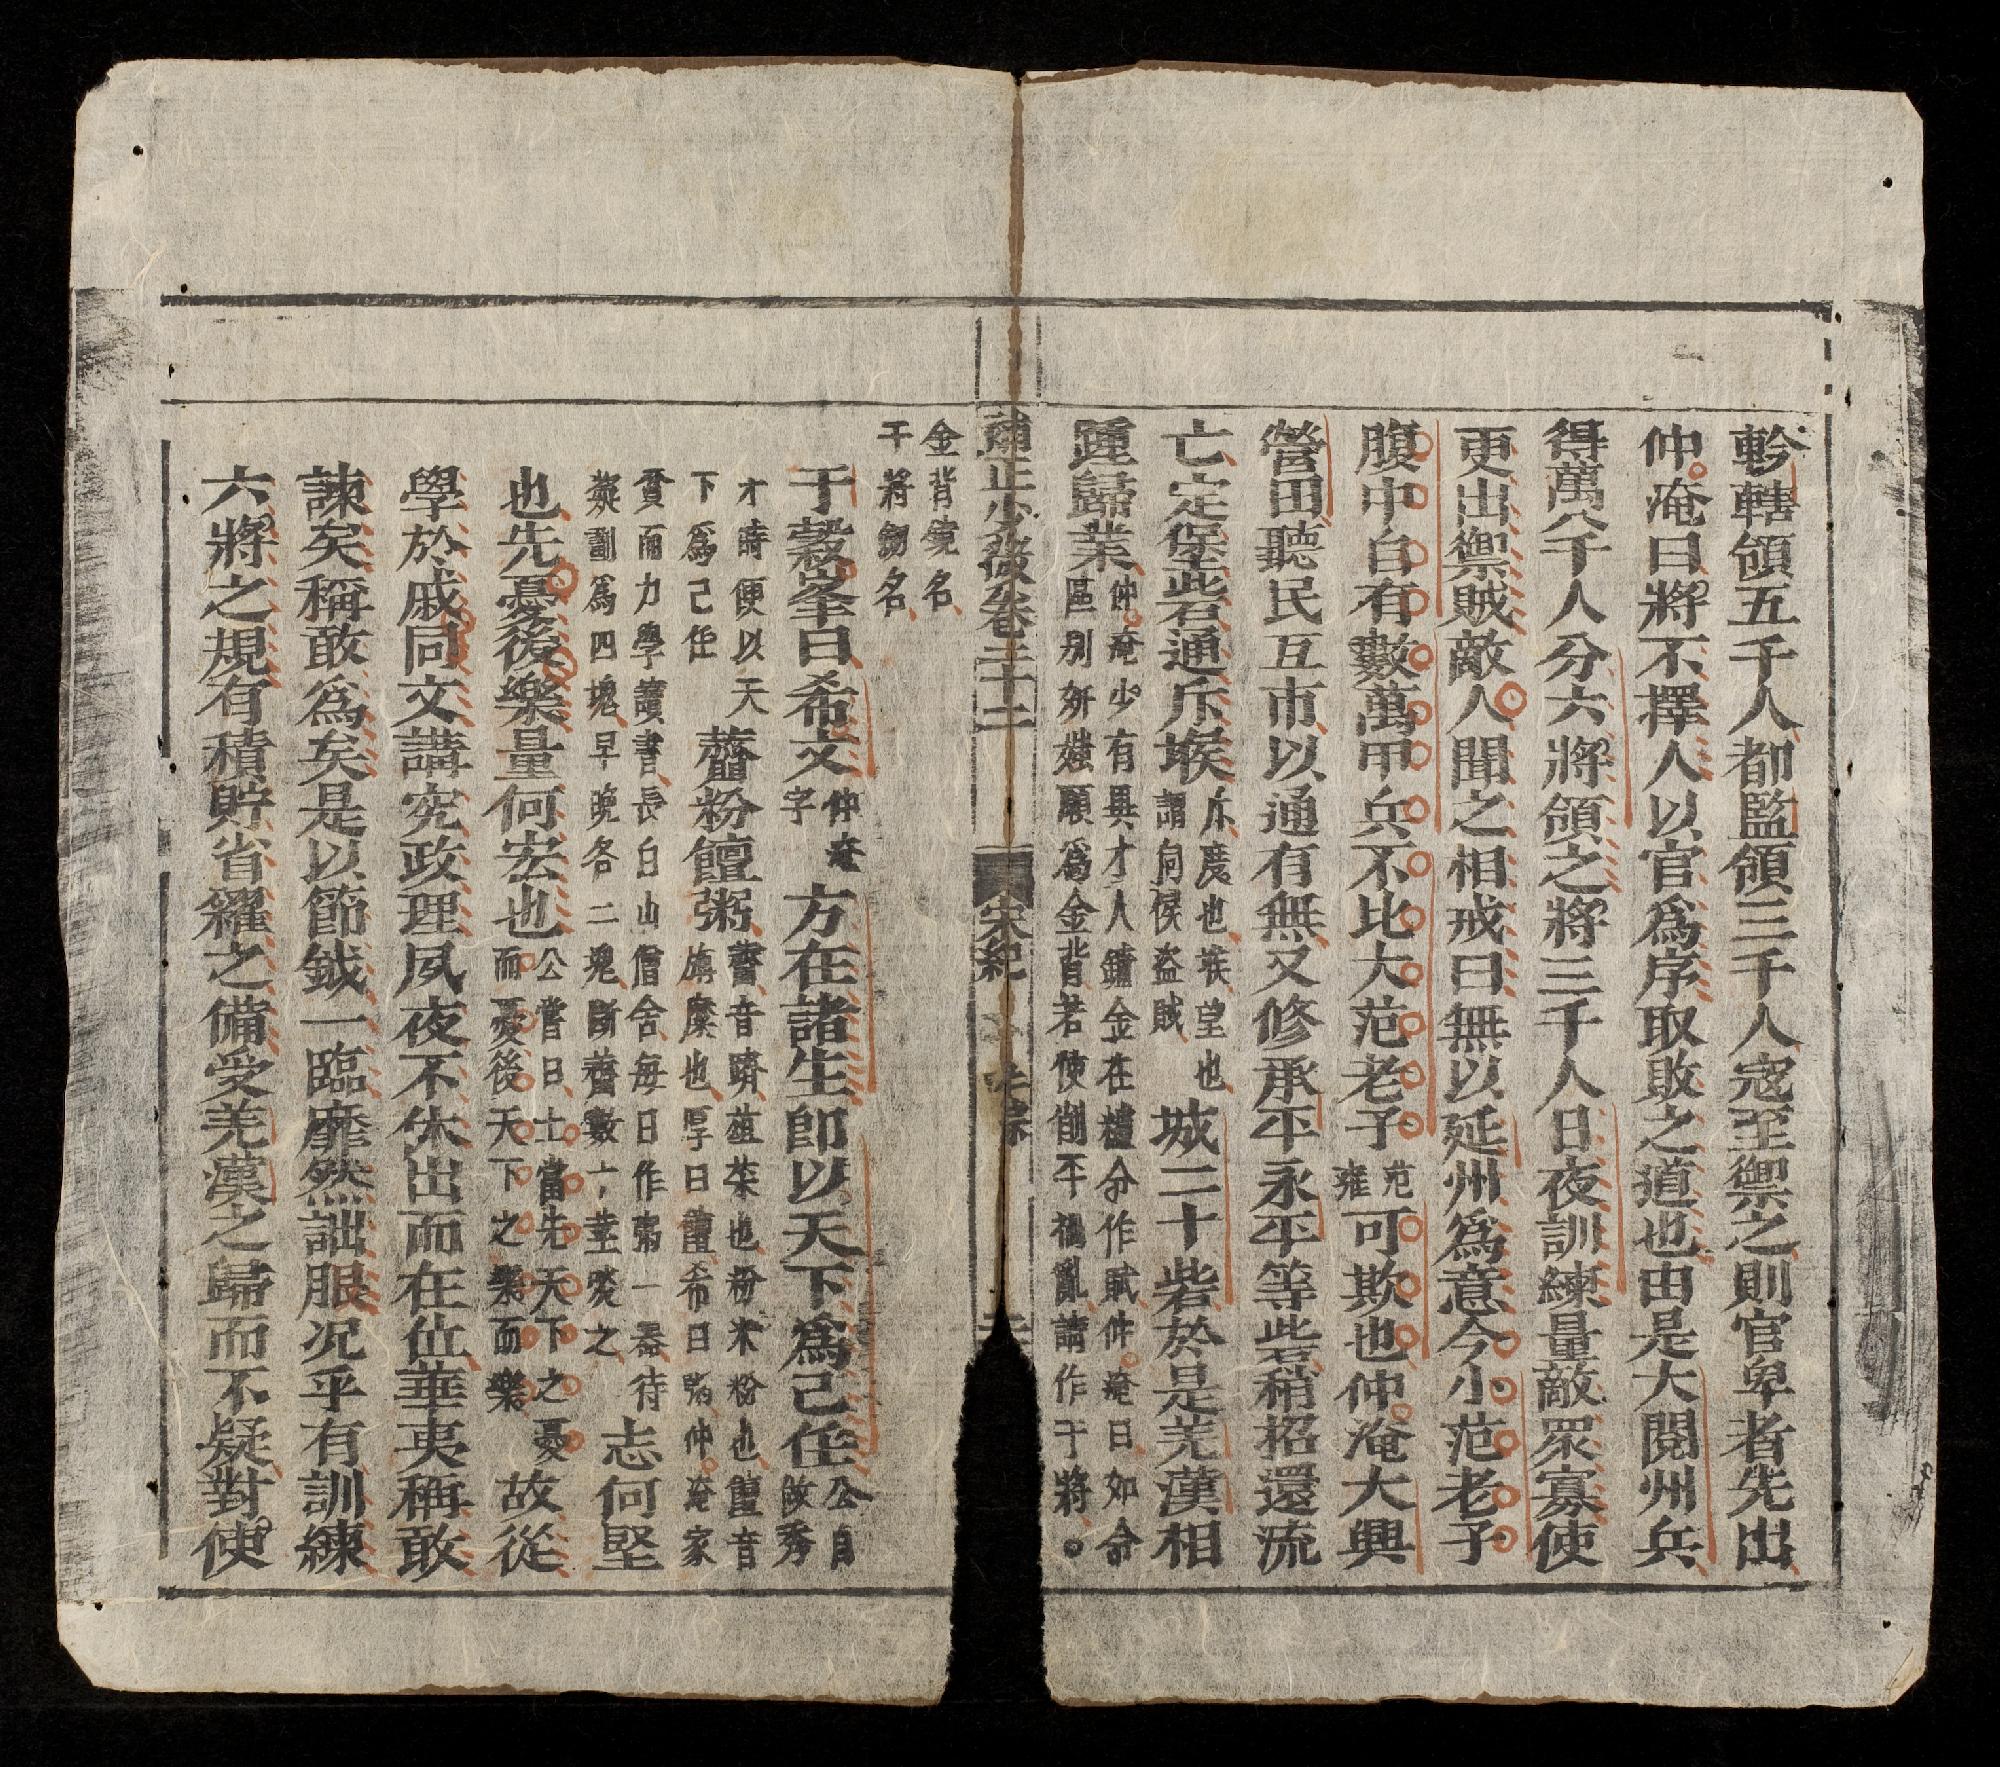 軫轄領五千人都監領三千人寇至禦之則官卑者先出
仲淹曰將不擇人以官爲序取敗之道也由是大閱州兵
得萬八千人分六將領之將三千人日夜訓練量敵眾寡使
更出禦賊敵人聞之相戒曰無以延州爲意今小范老子
腹中自有數萬甲兵不比大范老子范雍可欺也仲淹大興
營田聽民互市以通有無又修承平永平等砦稍招還流
亡定堡砦通斥堠斥度也堠望也謂伺候盜賊城二十砦於是羌漢相
踵歸業仲淹少有異才人鑄金在礼命作賦仲淹曰如命
區別妍媸願爲金背若使削平禍亂請作于將
金背鏡名
干將劒名
補正少微卷三十二
宋紀
于穀峯曰希文仲淹字方在諸生即以天下爲己任公自做秀
才時便以天下爲己任虀粉饘粥虀音躋葅菜也粉米粉也饘音旃糜也厚曰饘希曰粥仲淹家
貧而力學讀書長白山僧舍每日作粥一器待
凝劃爲四塊早晚各二塊斷虀數十莖啖之志何堅
也先憂後樂量何宏也公嘗曰士當先天下之憂而憂後天下之樂而樂故從
學於戚同文講究政理夙夜不休出而在位華夷稱敢
諫矣稱敢爲矣是以節鉞一臨靡然詘服况乎有訓練
六將之規有積貯省糴之備受羌漢之歸而不疑對使